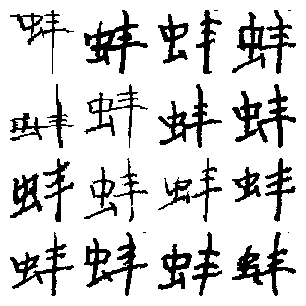 蚌 蚌 蚌 蚌
蚌 蚌 蚌 蚌
蚌 蚌 蚌 蚌
蚌 蚌 蚌 蚌